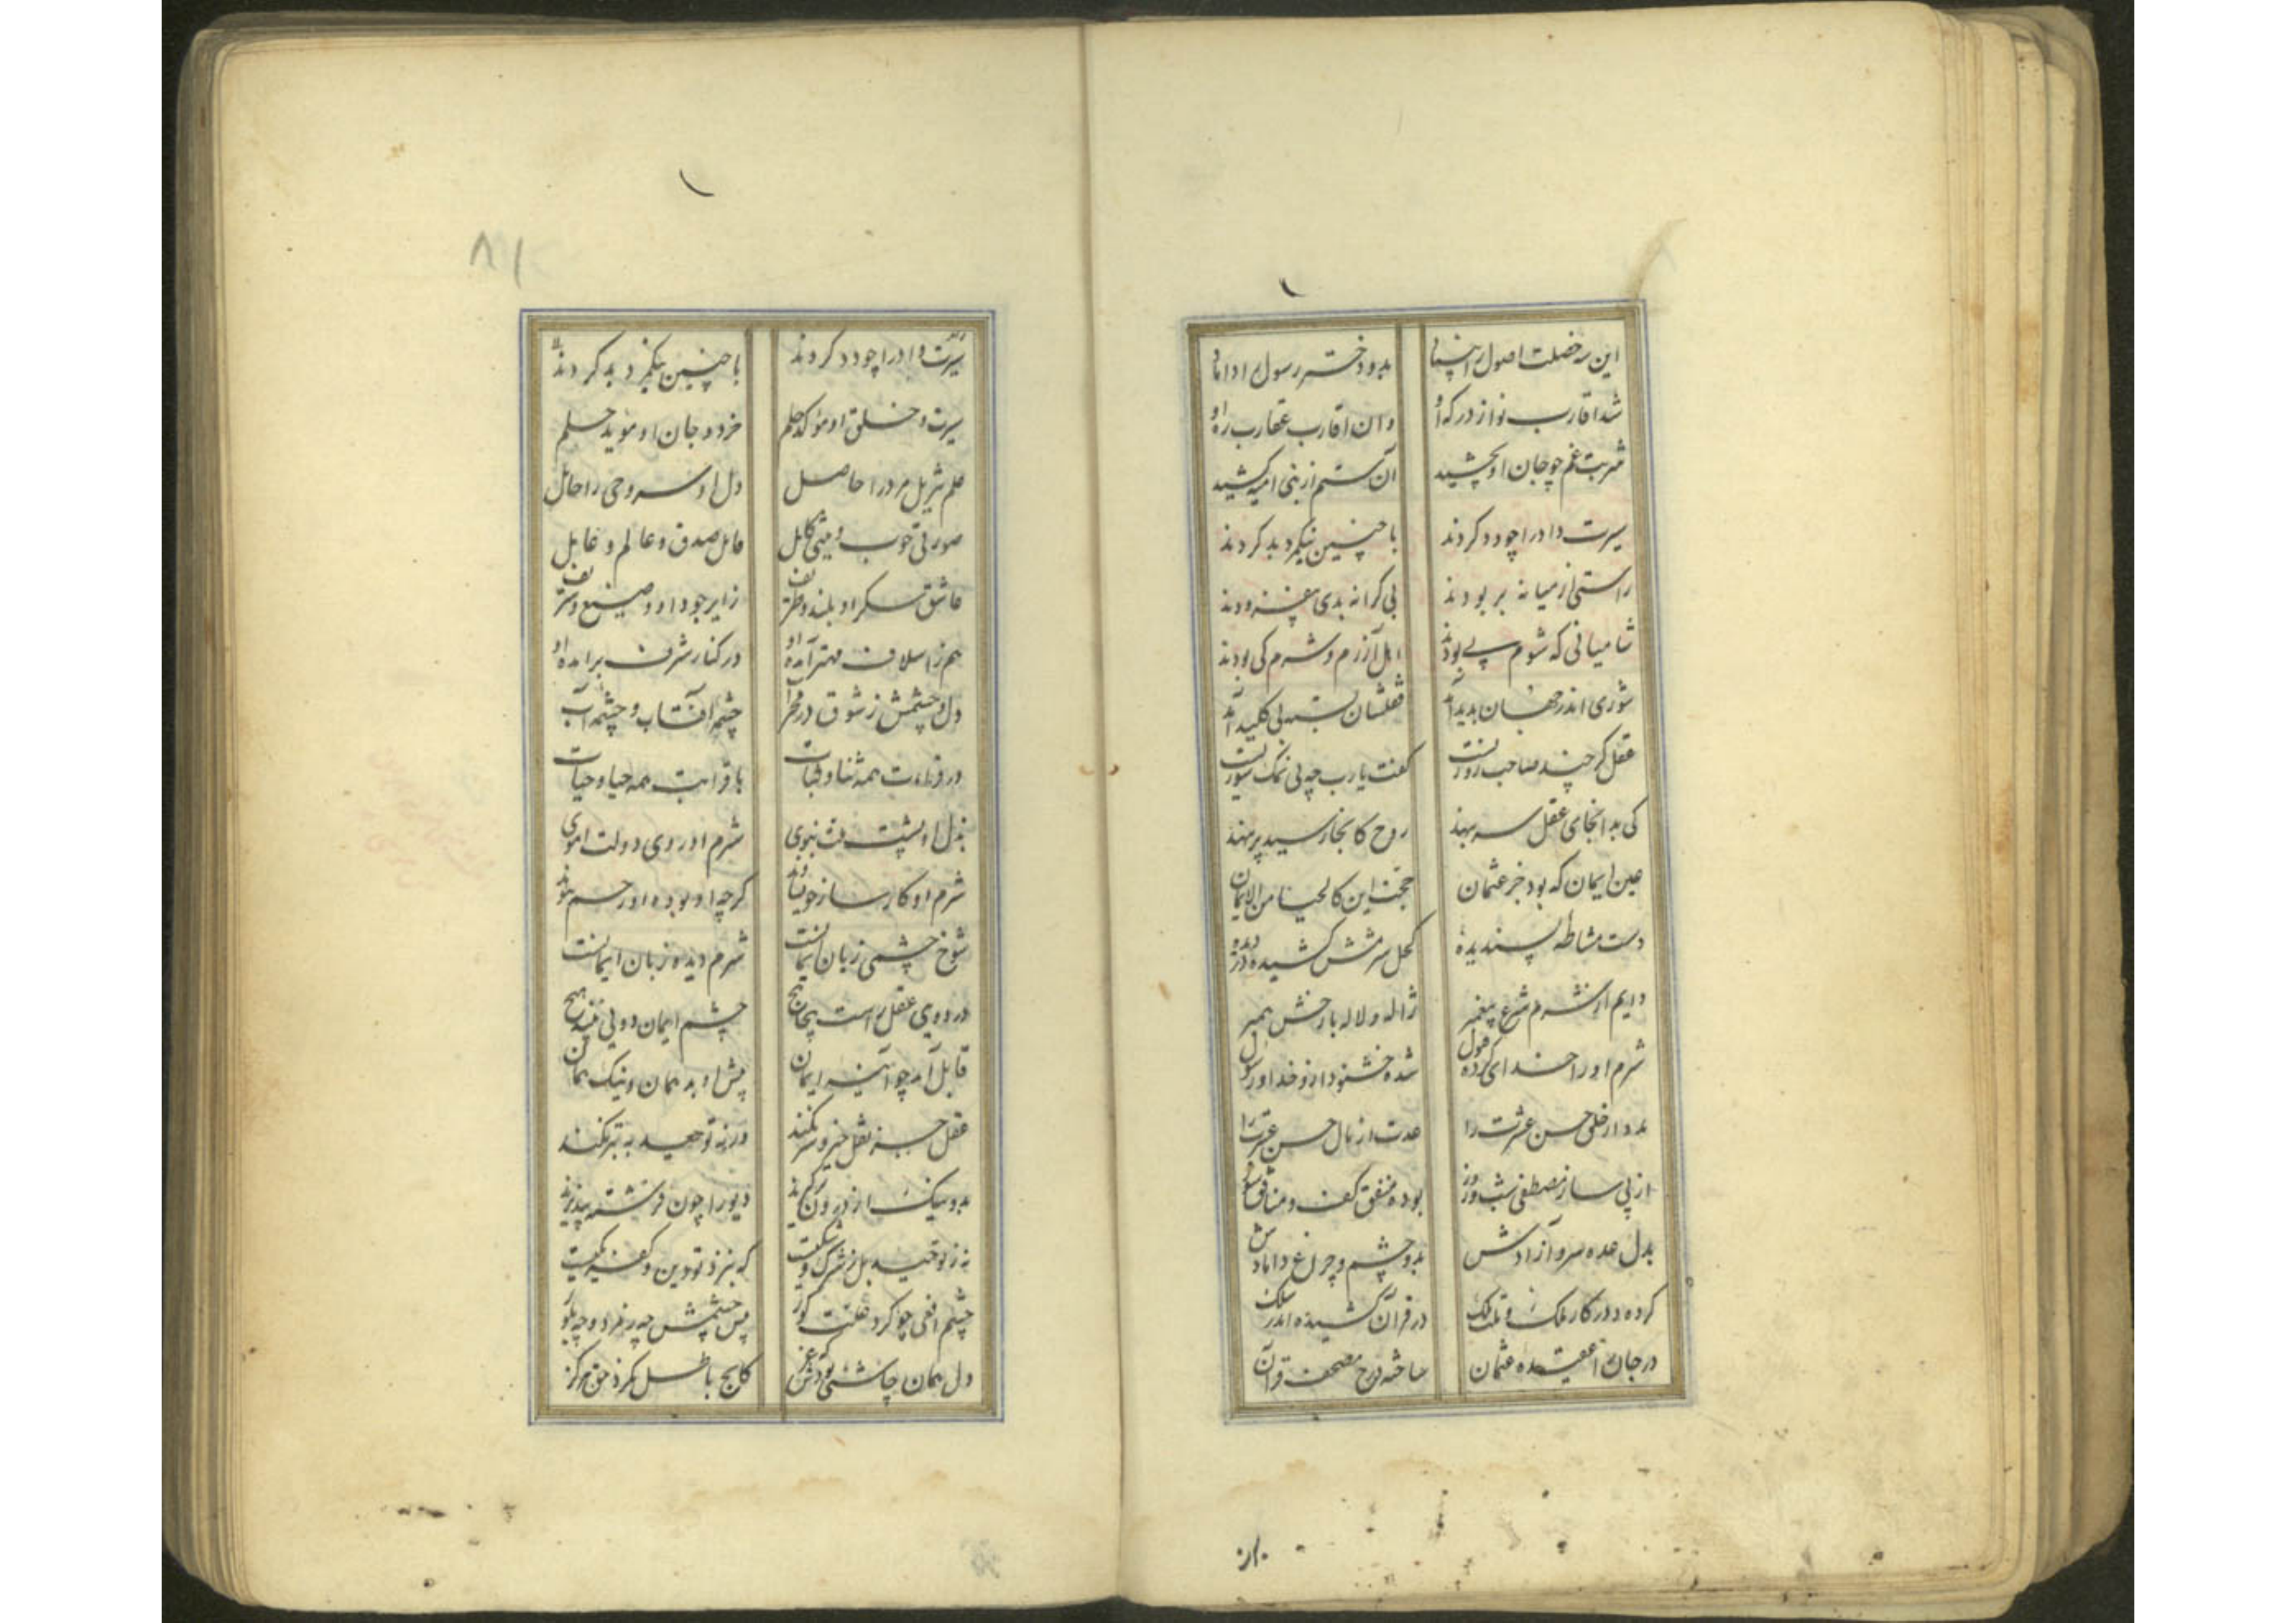 ۱
این سه خصلت اصول را بنیانی بد و دختر رسول را دامانی
شد اقارب نواز درگه او وان اقارب عقارب ره او
شربت غم چو جان او بچشید آن ستم از بنی امیه کشید
سیرت داد را چو دد کردند با چنین نیکمرد بد کردند
راستی از میانه بربودند بی کرانه بدی بیفزودند
شامیانی که شوم پی بودند اهل آزرم و شرم کی بودند
شوری اندر جهان پدید آمد قفلشان بسته بی کلید آمد
عقل کرچند صاحب روزیست گفت یارب چه بی نمک شوریست
کی بد انجای عقل سر بنهد روح کانجا رسید پر بنهد
عین ایمان که بود جز عثمان حجت این کالحیا من الایمان
دست مشاطه پسندیده کحل شرمش کشیده در دیده
دایم از شرم شرع پیغمبر ژاله و لاله بار خش همبر
شرم او را خدای کرده قبول شده خشنود ازو خدا و رسول
بد و از خلق حسن عشرت را عدت از مال حسن عسرت را
از پی ساز مصطفی شب و روز بوده منفق کف و منافق سوز
بدل عده سرو آزادش بد و چشم و چراغ دامادش
کرده در کار ملک و تلک در قران کشیده اندر سلک
در جان از عقیده عثمان ساخته درج مصحف قرآن
۱
۸۱
سیرت داد را چو دد کردند با چنین نیکمرد بد کردند
سیرت و خلق او موکد حلم خرد و جان او موید حلم
علم تنزیل مرد را حاصل دل او سر وحی را حامل
صورتی خوب و سیرتی کامل عامل صدق و عالم و عامل
عاشق سکر او بلند و ظریف زایر جود او وضیع و شریف
هم ز اسلاف مهتر آمده او در کنار شرف بر امده او
دل و چشمش ز شوق در محراب چشمه آفتاب و چشمه آب
در قراءت همه ثنا و نجات با قرابت همه حیا و حیات
بذل او پشت ملت نبوی شرم او روی دولت اموی
شرم او کار ساز خویشاوند گرچه او بوده او رحم پیوند
شوخ چشمی زیان ایمانست شرم دیده زبان ایمانست
در دوی عقل راست پیچاپیچ چشم ایمان دویی نبیند هیچ
قابل آمد چو آینه ایمان پیش او بد همان و نیک همان
عقل جز نقل خیر و شر نکند ور نه توحید به بتر نکند
بد و نیک از درون برگیرند دیو را چون فرشته بپذیرند
نه ز توحید بل ز شرک و شکیست که بنزد تو دین و کفر یکیست
چشم افعی چو کرد علت کور پس چشمش چه زمرد و چه بلور
دل همان چاشنی که بودش عز کانچ باطل نکرد حق هرگز